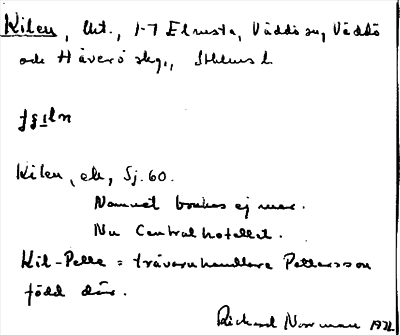 Kilen, lht., 1-7 Elmsta, Väddö sn, Väddö
och Häverö skg., Sthlms l.
Kilen, eh, Sj. 60.
Namnet brukas ej mer.
Nu Centralhotellet.
Kil-Pelle = trävaruhandlare Pettersson
född där.
Richard Norrman